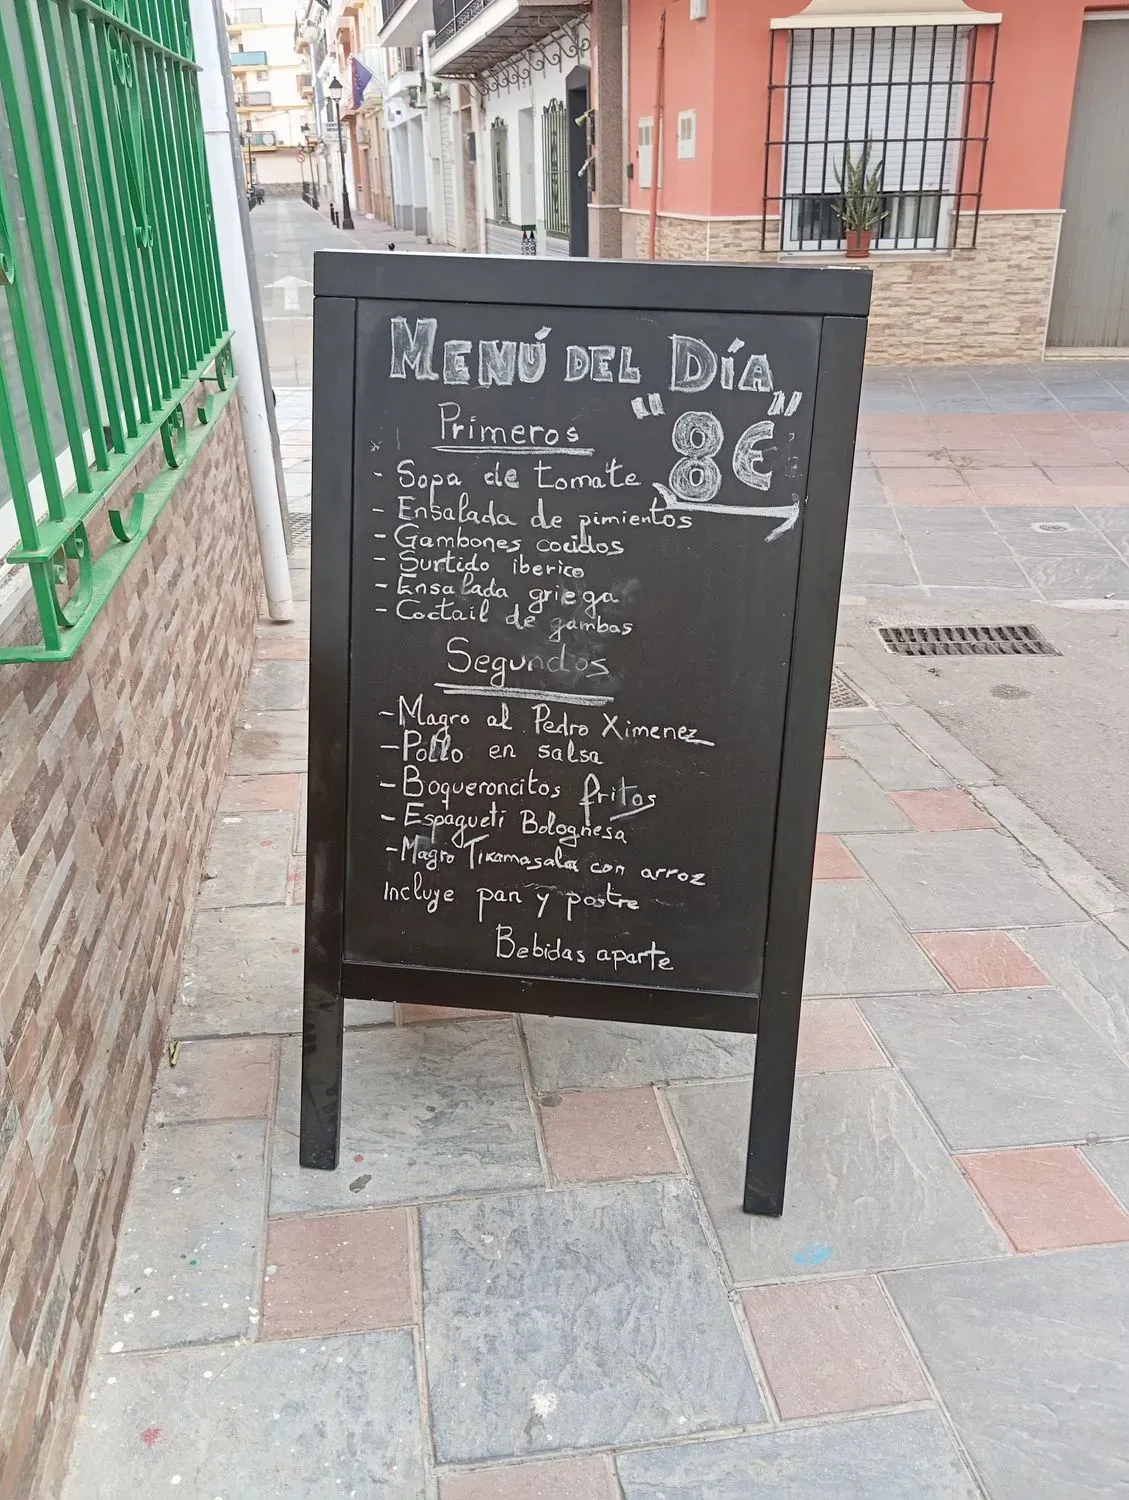 MENÚ DEL DÍA
"8€"
Primeros
- Sopa de tomate
- Ensalada de pimientos
- Gambones cocidos
- Surtido iberico
- Ensalada griega
- Coctail de gambas
Segundos
- Magro al Pedro Ximenez
- Pollo en salsa
- Boqueroncitos fritos
- Espagueti Bolognesa
- Magro Tikamasala con arroz
Incluye pan y postre
Bebidas aparte